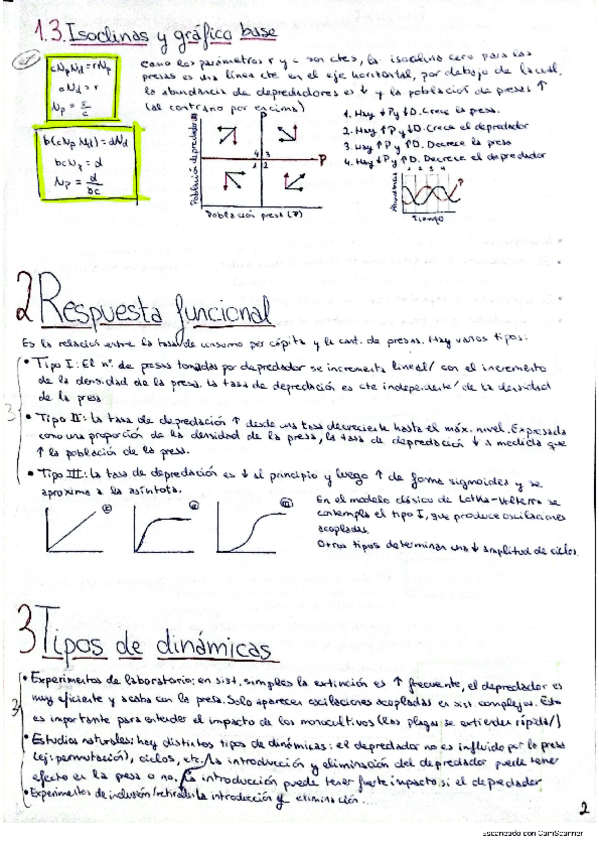 1.3. Isoclinas y gráfico base
Como los parámetros r y c son ctes, la isoclina cero para las
presas es una línea cte en el eje horizontal, por debajo de la cual,
la abundancia de depredadores es ↓ y la población de presas ↑
(al contrario por encima)
cNpNd = rNp
cNd = r
Np = r/c
b(cNpNd) = dNd
bcNp = d
Np = d/bc
1. Hay ↓P y ↓D. Crece la presa.
2. Hay ↑P y ↓D. Crece el depredador
3. Hay ↑P y ↑D. Decrece la presa
4. Hay ↓P y ↑D. Decrece el depredador
Población depredador
P
P
4 3
1 2
Población presa (P)
1 2 3 4
Abundancia
Tiempo
2 Respuesta funcional
Es la relación entre la tasa de consumo per cápita y la cant. de presas. Hay varios tipos:
• Tipo I: El nº. de presas tomadas por depredador se incrementa lineal/ con el incremento
de la densidad de la presa. La tasa de depredación es cte independiente/ de la densidad
de la presa
3
• Tipo II: La tasa de depredación ↑ desde una tasa decreciente hasta el máx. nivel. Expresada
como una proporción de la densidad de la presa, la tasa de depredación ↓ a medida que
↑ la población de la presa.
• Tipo III: La tasa de depredación es ↓ al principio y luego ↑ de forma sigmoidea y se
aproxima a la asíntota.
I
II
III
En el modelo clásico de Lotka-Volterra se
contempla el tipo I, que produce oscilaciones
acopladas.
Otros tipos determinan una ↓ amplitud de ciclos.
3 Tipos de dinámicas
• Experimentos de laboratorio: en sist. simples la extinción es ↑ frecuente, el depredador es
muy eficiente y acaba con la presa. Solo aparecen oscilaciones acopladas es sist complejos. Esto
es importante para entender el impacto de los monocultivos (las plagas se extienden rápida/)
3
• Estudios naturales: hay distintos tipos de dinámicas: el depredador no es influido por la presa
(ej: permutación), ciclos, etc. La introducción y eliminación del depredador puede tener
efecto es la presa o no. La introducción puede tener fuerte impacto si el depredador
• Experimentos de inclusión/retirada: la introducción y eliminación.
2
Escaneado con CamScanner